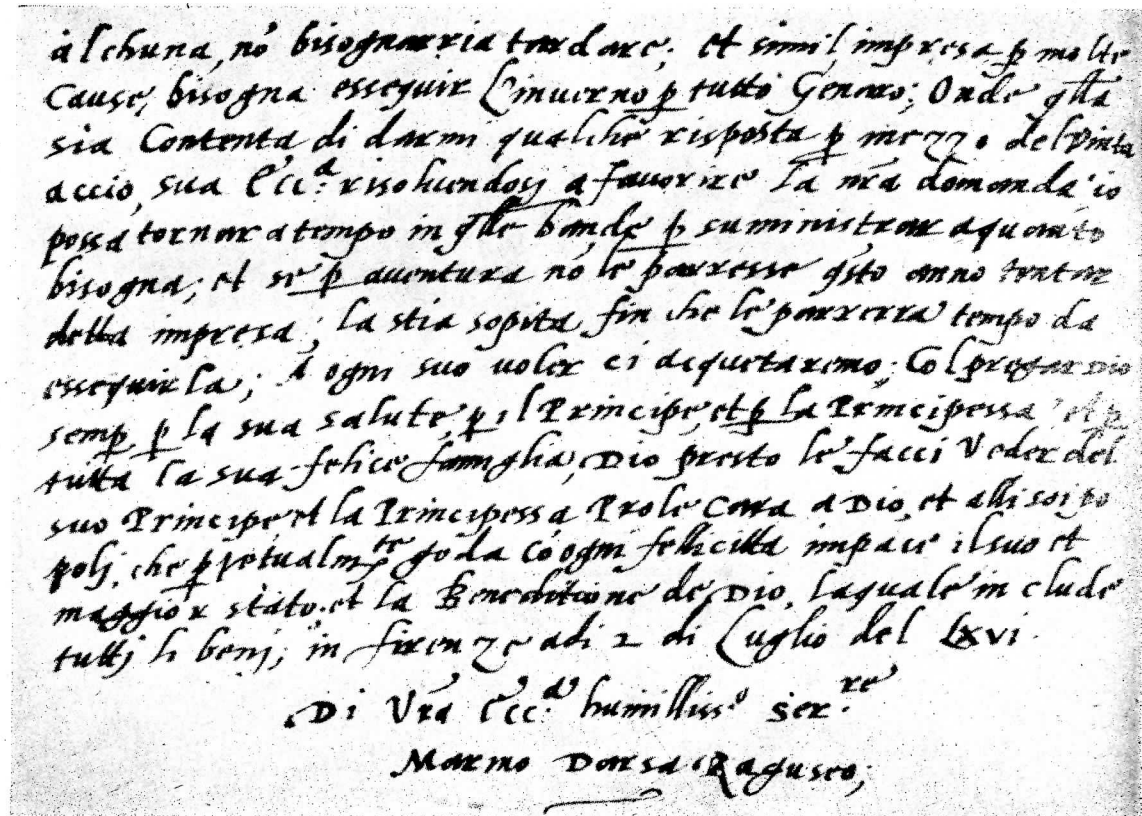 alchuna, nõ bisognarria tardare; et simil impresa ꝑ molte
Cause, bisogna essequir L'inverno ꝑ tutto Genaro; Onde q̃lla
sia Contenta di darmi qualche risposta ꝑ mezzo del Vinta
accio, sua Ecc.ª risoluendosi a favorire la nr̃a domanda io
possa tornar a tempo in q̃lle bande ꝑ suministrar a quanto
bisogna; et se ꝑ aventura nõ le parresse q̃sto anno tentar
della impresa; la stia sopita fin che le parrerra tempo da
essequirla; A ogni suo voler ci acquetaremo; Col pregar Dio
semꝑ, ꝑ la sua salute, ꝑ il Principe, et ꝑ la Principessa et ꝑ
tutta la sua felice famiglia, Dio presto le facci Veder del
suo Principe et la Principessa Prole Cara a Dio, et alli soi po
polj, che ꝑpetualm.te goda cõ ogni fellicitta impace il suo et
maggior stato, et la Beneditione de Dio, laquale in clude
tuttj li benj; in firenze adi 2 di Luglio del LXVI.
Di Vr̃a Ecc.ª humilliss.º Ser.re
Marino Darsa Raguseo;